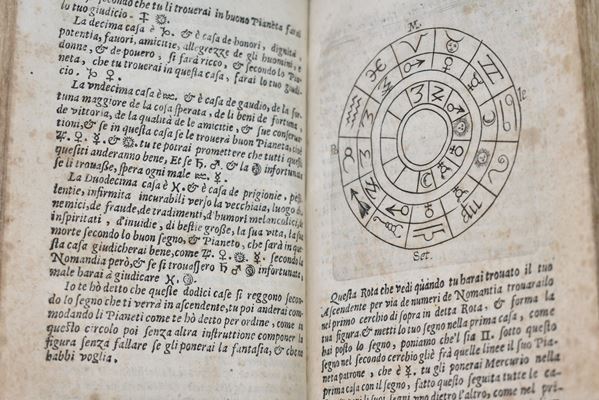 secondo che tu li trouerai in buono Pianeta farai
lo tuo giudicio. ☿ ☉
La decima casa è ♑. & è casa de honori, dignità
potentia, fauori, amicitie, allegrezze de gli huomini, e
donne, & de pouero, si farà ricco, & secondo lo Pia-
neta, che tu trouerai in questa casa, farai lo tuo giudi-
cio. ♄ ♀.
La vndecima casa è ♒. & è casa de gaudio, de la for-
tuna maggiore de la cosa sperata, de li beni de fortuna,
de vittoria, de la qualità de le amicitie, & sue conserua-
tioni, & se in questa casa se le trouerà buon Pianeta, cioè
♃. ♀. ☿. & ☉. tu te poi promettere che tutti questi
quesiti anderanno bene, Et se ♄. ♂. & la infortunata
se li trouasse, spera ogni male
La Duodecima casa è ♓. & è casa de prigionie, pesti-
lentie, infirmita incurabili verso la vecchiaia, luogo di
nemici, de fraude, de tradimenti, d'humori melancolici, de
inspiritati, d'inuidie, di bestie grosse, la sua vita, la sua
morte secondo lo buon segno, & Pianeto, che sarà in que-
sta casa giudicherai bene, come ♃. ☉. ☿. secondo la
Nomandia però, & se si trouassero ♄ ♂ infortunate,
male harai à giudicare ♓.
Io te hò detto che queste dodici case si reggono secon-
do lo segno che ti verrà in ascendente, tu poi anderai como-
modando li Pianeti come te hò detto per ordine, come in
questo circolo poi senza altra instruttione componer la
figura senza fallare se gli ponerai la fantasia, & che ne
habbi voglia.
M.
♈ ♉ ♊ ♋ ♌ ♍ ♎ ♏ ♐ ♑ ♒ ♓
le
Set.
Questa Rota che vedi quando tu harai trouato il tuo
Ascendente per via de numeri de Nomantia trouarailo
nel primo cerchio di sopra in detta Rota, & forma la
tua figura & metti lo tuo segno nella prima casa, come
hai posto lo segno, poniamo che'l sia ♊. sotto questo
segno nel secondo cerchio gliè frà quelle linee il suo Pia-
neta patrone, che è ☿. tu gli ponerai Mercurio nella
prima casa con il segno, fatto questo seguita tutte le ca-